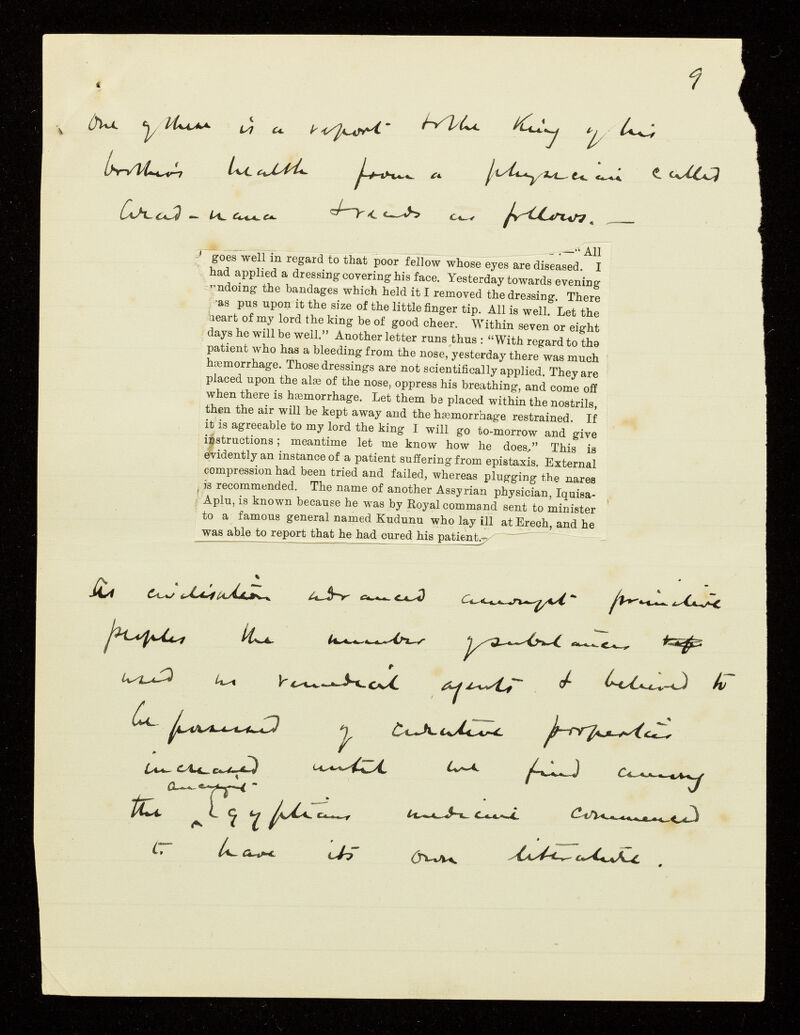 9
One of these is a report to the King of his
brother's health from a physician called
Arad-nana & reads as follows. —
.—"All
goes well in regard to that poor fellow whose eyes are diseased. I
had applied a dressing covering his face. Yesterday towards evening
undoing the bandages which held it I removed the dressing. There
was pus upon it the size of the little finger tip. All is well. Let the
heart of my lord the king be of good cheer. Within seven or eight
days he will be well." Another letter runs thus: "With regard to the
patient who has a bleeding from the nose, yesterday there was much
hæmorrhage. Those dressings are not scientifically applied. They are
placed upon the alæ of the nose, oppress his breathing, and come off
when there is hæmorrhage. Let them be placed within the nostrils,
then the air will be kept away and the hæmorrhage restrained. If
it is agreeable to my lord the king I will go to-morrow and give
instructions; meantime let me know how he does." This is
evidently an instance of a patient suffering from epistaxis. External
compression had been tried and failed, whereas plugging the nares
is recommended. The name of another Assyrian physician, Iquisa-
Aplu, is known because he was by Royal command sent to minister
to a famous general named Kudunu who lay ill at Erech, and he
was able to report that he had cured his patient.—
As civilisation advanced amongst primitive
peoples the number of substances
used as remedial agents & believed to
be possessed of curative properties
increased until we find among
ancient
the Egyptians medicine commenced
to have its own literature.